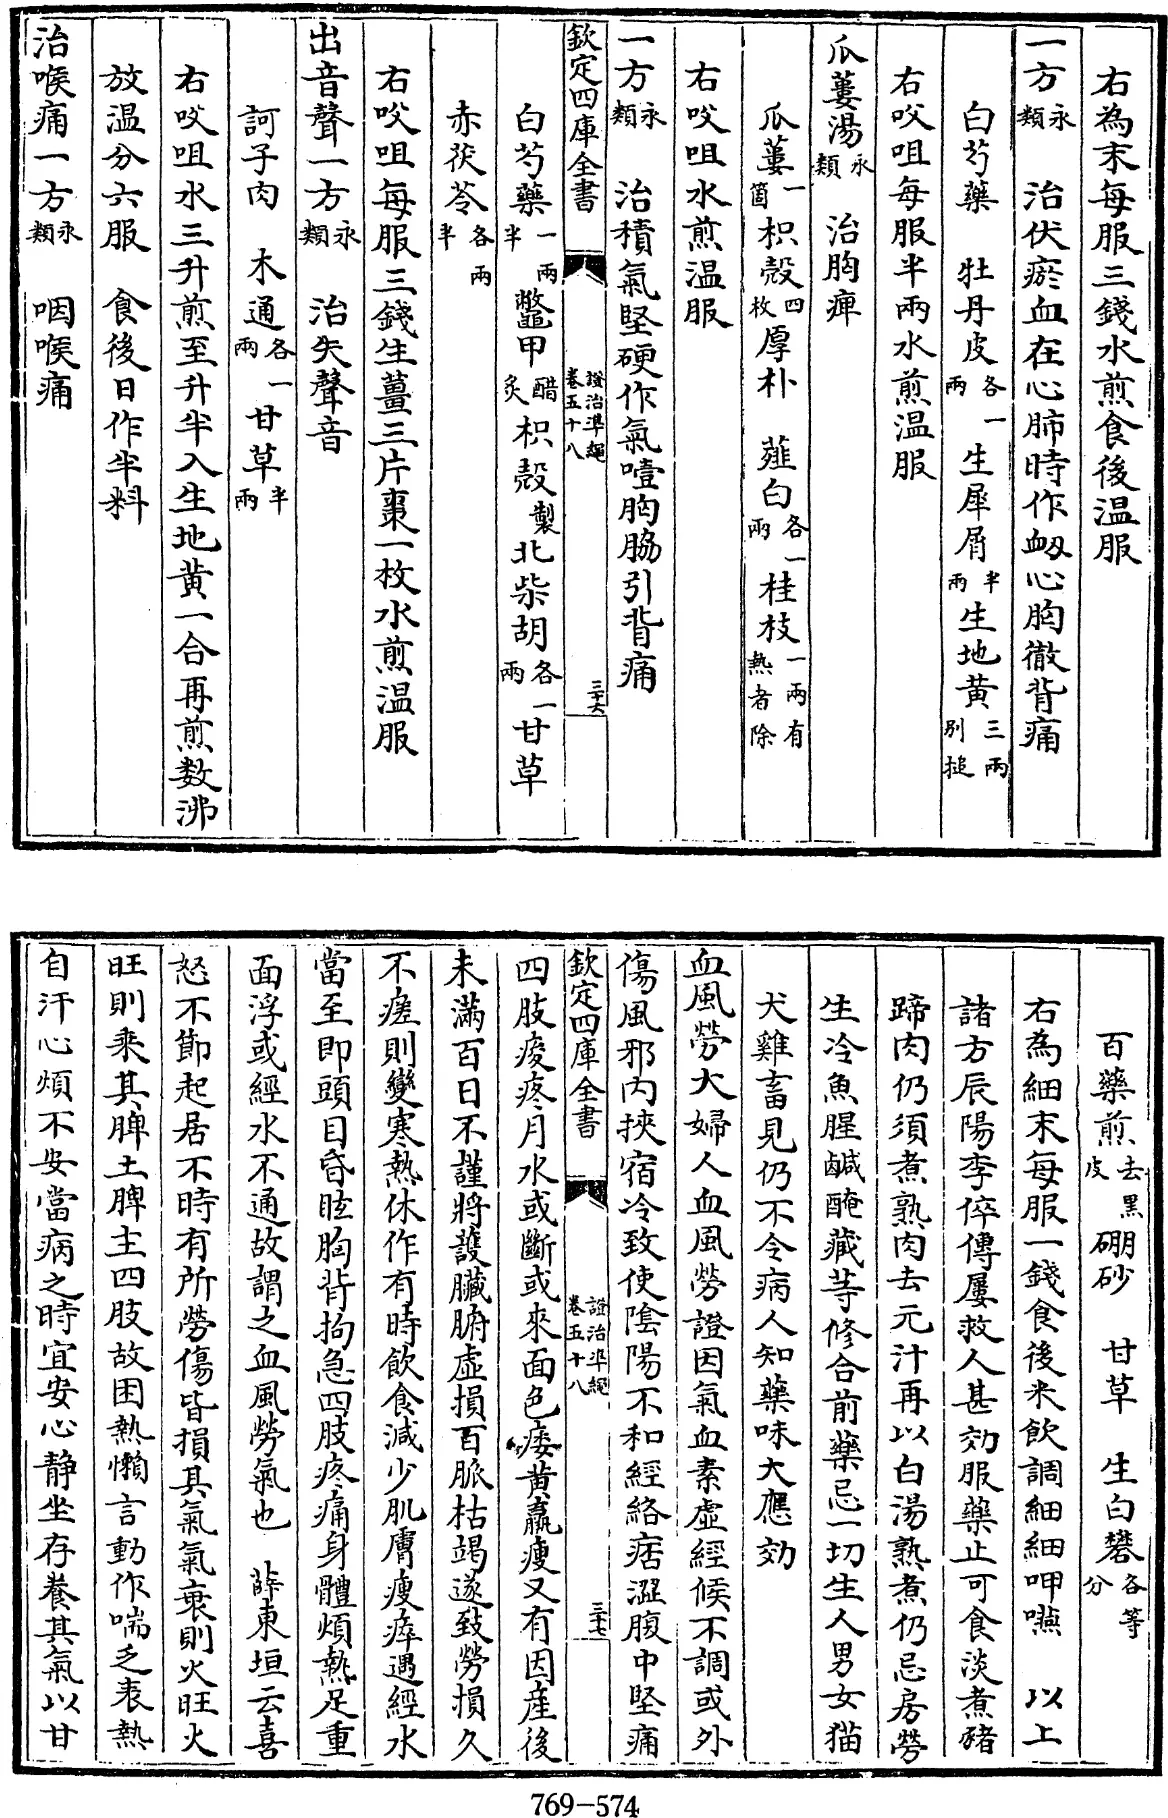 右為末每服三錢水煎食後温服
一方永類 治伏瘀血在心肺時作衂心胸徹背痛
白芍藥 牡丹皮各一兩 生犀屑半兩 生地黄三兩别搥
右㕮咀每服半兩水煎温服
瓜蔞湯永類 治胸痺
瓜蔞一箇 枳殼四枚 厚朴 薤白各一兩 桂枝一兩有熱者除
右㕮咀水煎温服
一方永類 治積氣堅硬作氣噎胸脇引背痛
欽定四庫全書 證治準繩卷五十八 三十六
白芍藥一兩半 鼈甲醋炙 枳殼製 北柴胡各一兩 甘草
赤茯苓各半兩
右㕮咀每服三錢生薑三片棗一枚水煎温服
出音聲一方永類 治失聲音
訶子肉 木通各一兩 甘草半兩
右㕮咀水三升煎至升半入生地黄一合再煎数沸
放温分六服 食後日作半料
治喉痛一方永類 咽喉痛
百藥煎去黑皮 硼砂 甘草 生白礬各等分
右為細末每服一錢食後米飲調細細呷嚥 以上
諸方辰陽李倅傳屢救人甚効服藥止可食淡煮豬
蹄肉仍須煮熟肉去元汁再以白湯熟煮仍忌房勞
生冷魚腥鹹醃藏等修合前藥忌一切生人男女猫
犬雞畜見仍不令病人知藥味大應効
血風勞大婦人血風勞證因氣血素虚經候不調或外
傷風邪内挾宿冷致使陰陽不和經絡痞澀腹中堅痛
欽定四庫全書 證治準繩卷五十八 三十七
四肢痠疼月水或斷或來面色痿黄羸瘦又有因産後
未滿百日不謹將護臟腑虚損百脈枯竭遂致勞損久
不瘥則變寒熱休作有時飲食減少肌膚瘦瘁遇經水
當至即頭目昏眩胸背拘急四肢疼痛身體煩熱足重
面浮或經水不通故謂之血風勞氣也 薛東垣云喜
怒不節起居不時有所勞傷皆損其氣氣衰則火旺火
旺則乘其脾土脾主四肢故困熱懶言動作喘乏表熱
自汗心煩不安當病之時宜安心静坐存養其氣以甘
769-574